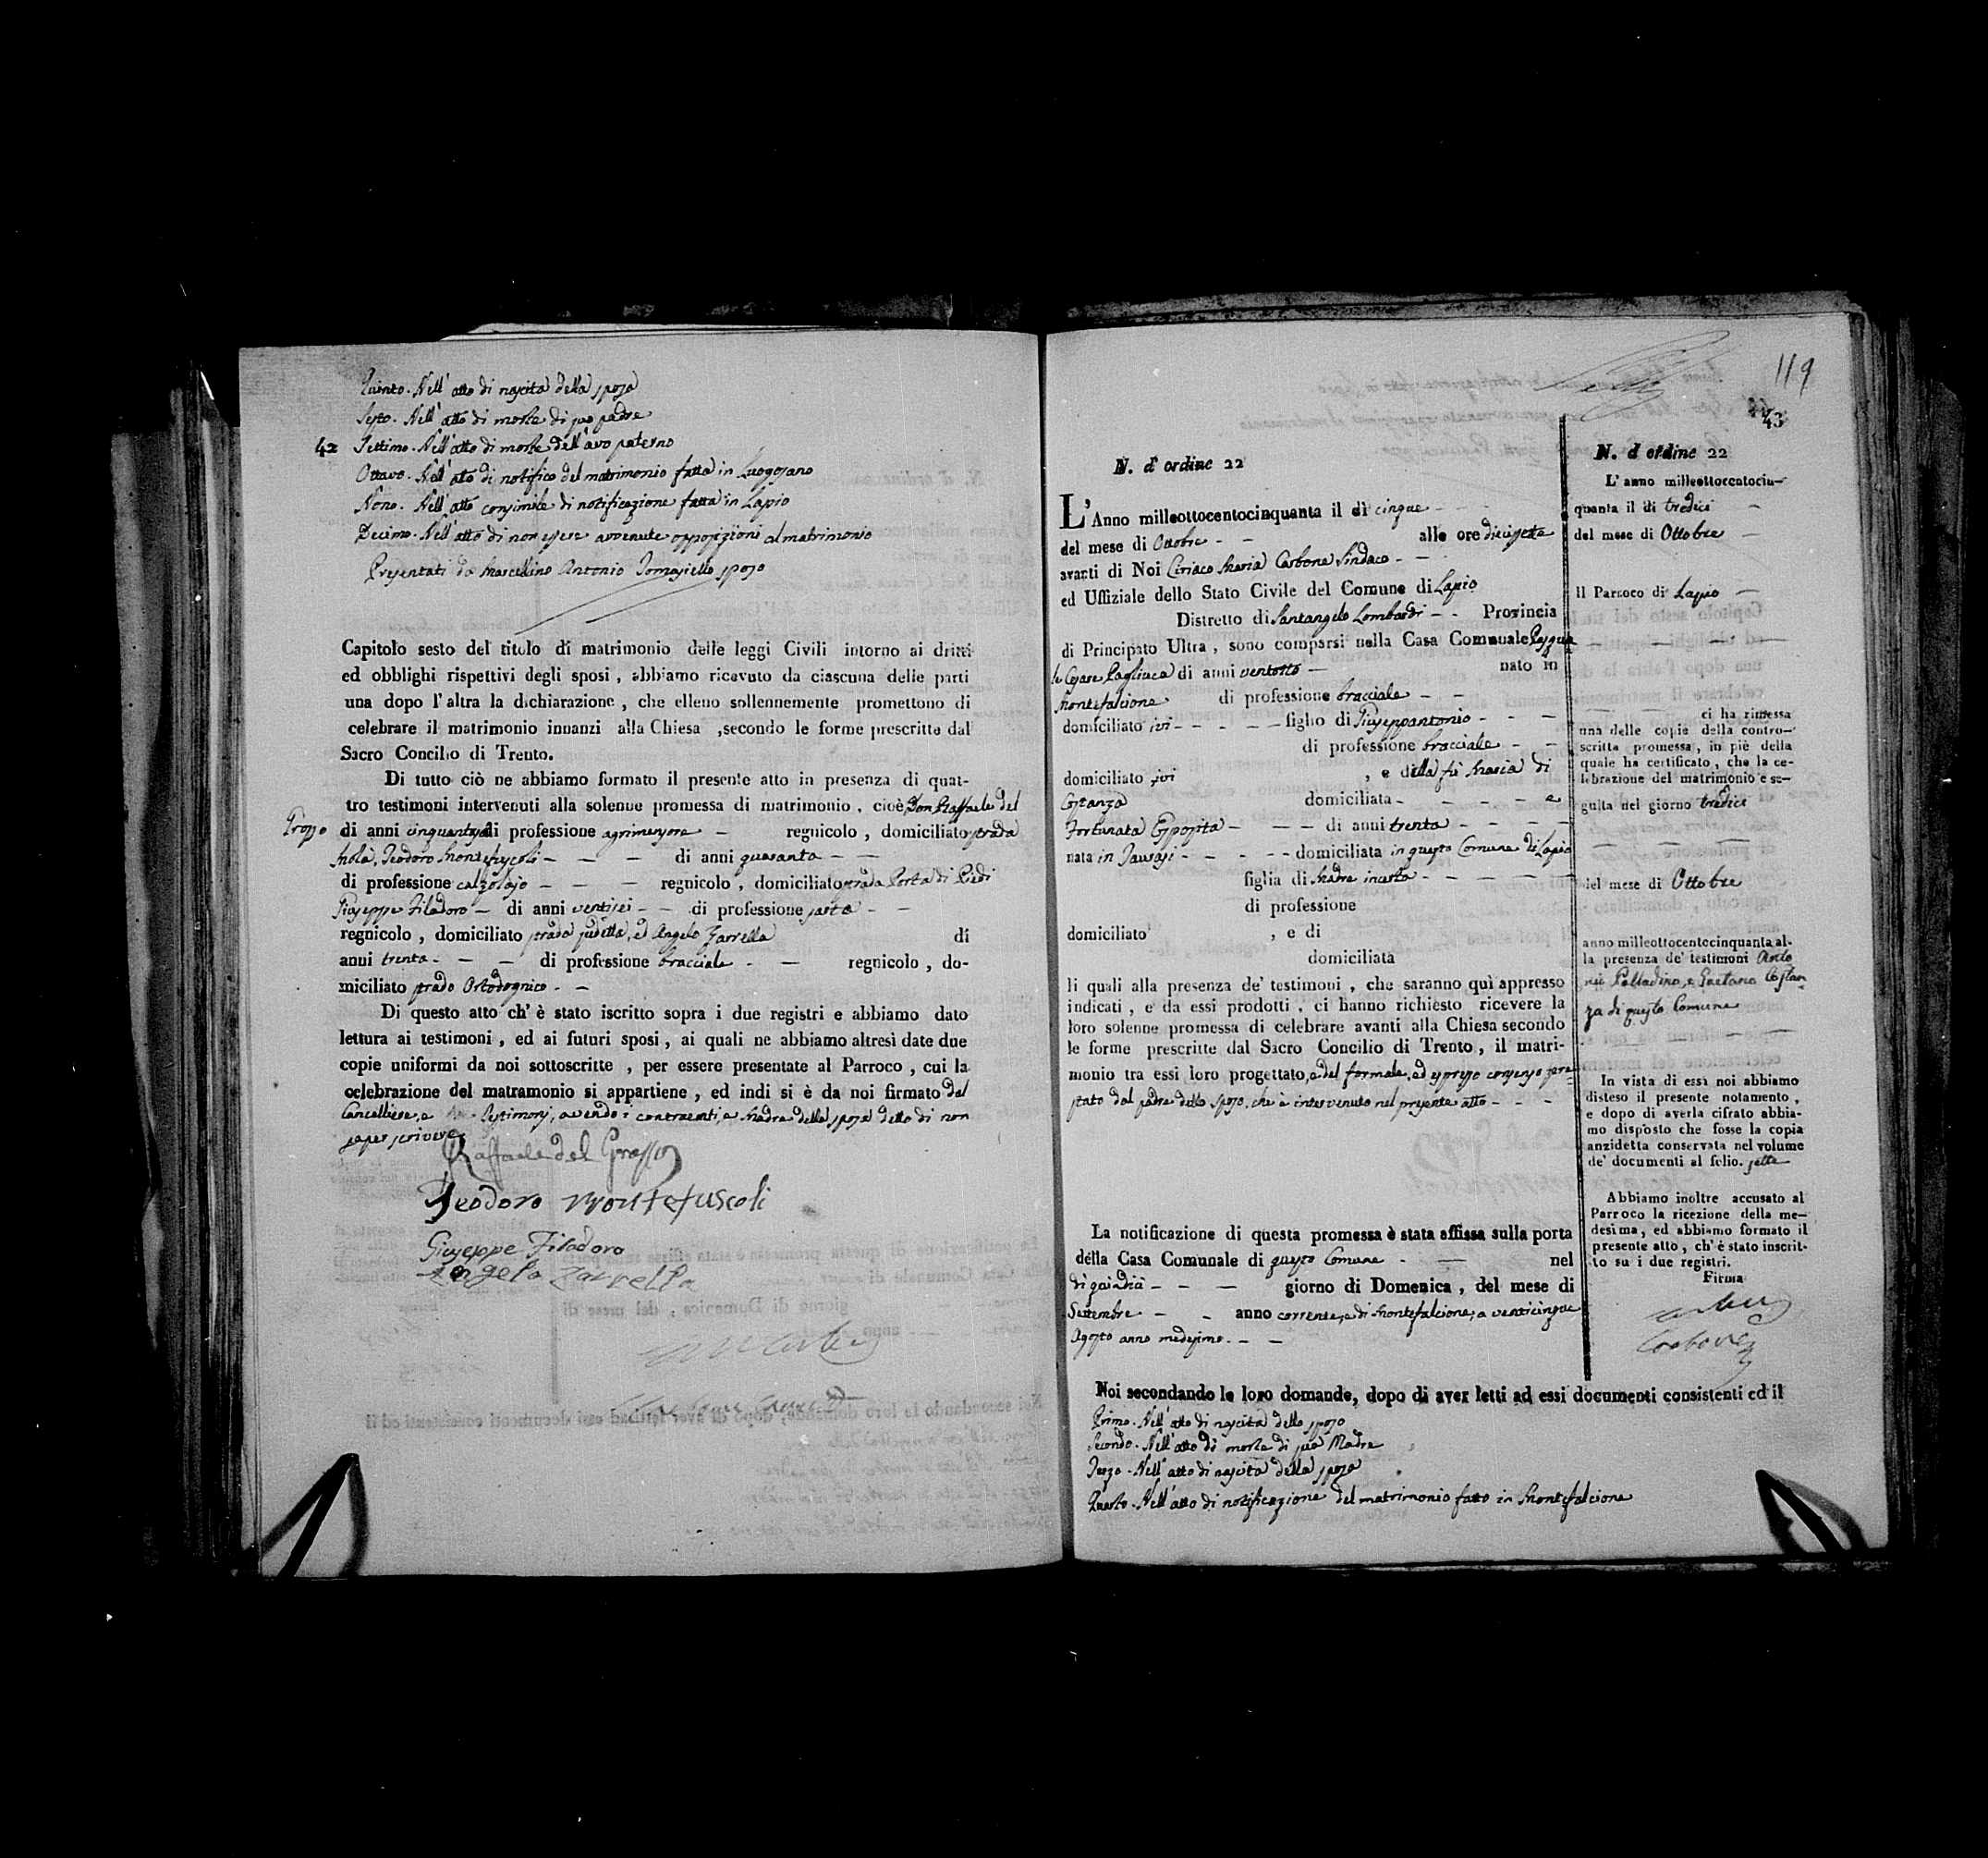 Quinto. Nell' atto di nascita della sposa
Sesto. Nell' atto di morte di suo padre
42 Settimo. Nell' atto di morte dell' avo paterno
Ottavo. Nell' atto di notifica del matrimonio fatta in Luogosano
Nono. Nell' atto consimile di notificazione fatta in Lapio
Decimo. Nell' atto di non essere avvenute opposizioni al matrimonio
Presentati da Marcellino Antonio Tomasiello sposo
Capitolo sesto del titolo di matrimonio delle leggi Civili intorno ai dritti
ed obblighi rispettivi degli sposi , abbiamo ricevuto da ciascuna delle parti
una dopo l' altra la dichiarazione , che elleno sollennemente promettono di
celebrare il matrimonio innanzi alla Chiesa , secondo le forme prescritte dal
Sacro Concilio di Trento.
Di tutto ciò ne abbiamo formato il presente atto in presenza di quat-
tro testimoni intervenuti alla solenne promessa di matrimonio , cioè Don Raffaele del
Grosso di anni cinquantasei di professione agrimensore — regnicolo , domiciliato strada
Mola, Teodoro Montefuscoli — — — di anni quaranta — —
di professione calzolajo — — — regnicolo , domiciliato strada Porta di Piedi
Giuseppe Filadoro — di anni ventisei - — di professione sarto - —
regnicolo , domiciliato strada juditta, ed Angelo Zarrella di
anni trenta - — — di professione bracciale - — regnicolo , do-
miciliato strada Ortodognico - —
Di questo atto ch' è stato iscritto sopra i due registri e abbiamo dato
lettura ai testimoni , ed ai futuri sposi , ai quali ne abbiamo altresì date due
copie uniformi da noi sottoscritte , per essere presentate al Parroco , cui la
celebrazione del matramonio si appartiene , ed indi si è da noi firmato dal
Cancelliere, e Testimonj, avendo i contraenti, e Madre della sposa detto di non
saper scrivere
Raffaele del Grosso
Teodoro Montefuscoli
Giuseppe Filadoro
Angelo Zarrella
119
43
N. d' ordine 22
L' Anno milleottocentocinquanta il dì cinque - - -
del mese di Ottobre - — alle ore diecisette
avanti di Noi Ciriaco Maria Carbone Sindaco - —
ed Uffiziale dello Stato Civile del Comune di Lapio
Distretto di Santangelo Lombardi — - Provincia
di Principato Ultra , sono comparsi nella Casa Comunale Pasqua
le Cesare Pagliuca di anni ventotto — nato in
Montefalcione di professione bracciale - —
domiciliato ivi - — — — figlio di Giuseppantonio - - —
di professione bracciale — —
domiciliato ivi , e della fù Maria di
Costanza domiciliata - — — — e
Fortunata Esposita — — — di anni trenta — — —
nata in Taurasi - — - — domiciliata in questo Comune di Lapio
figlia di Madre incerta - — — — —
di professione
domiciliato , e di
domiciliata
li quali alla presenza de' testimoni , che saranno quì appresso
indicati , e da essi prodotti , ci hanno richiesto ricevere la
loro solenne promessa di celebrare avanti alla Chiesa secondo
le forme prescritte dal Sacro Concilio di Trento , il matri-
monio tra essi loro progettato, e del formale, ed espresso consenso pre
stato dal padre dello sposo, che è intervenuto nel presente atto - — -
La notificazione di questa promessa è stata affissa sulla porta
della Casa Comunale di questo Comune - — nel
dì quindici — — — giorno di Domenica , del mese di
Settembre — - anno corrente, e di Montefalcione, a venticinque
Agosto anno medesimo - —
Noi secondando le loro domande, dopo di aver letti ad essi documenti consistenti ed il
Primo. Nell' atto di nascita dello sposo
Secondo. Nell' atto di morte di sua Madre
Terzo. Nell' atto di nascita della sposa
Quarto. Nell' atto di notificazione del matrimonio fatto in Montefalcione
N. d ordine 22
L' anno milleottocentocin—
quanta il di tredici —
del mese di Ottobre —
Il Parroco di Lapio —
ci ha rimessa
una delle copie della contro—
scritta promessa , in piè della
quale ha certificato , che la ce-
lebrazione del matrimonio è se—
guita nel giorno tredici
del mese di Ottobre
anno milleottocentocinquanta al-
la presenza de' testimoni Anto
nio Palladino, e Gaetano Costan
za di questo Comune
In vista di essi noi abbiamo
disteso il presente notamento ,
e dopo di averla cifrato abbia-
mo disposto che fosse la copia
anzidetta conservata nel volume
de' documenti al folio. sette
Abbiamo inoltre accusato al
Parroco la ricezione della me—
desima , ed abbiamo formato il
presente atto , ch' è stato inscrit-
to su i due registri.
Firma
Carbone